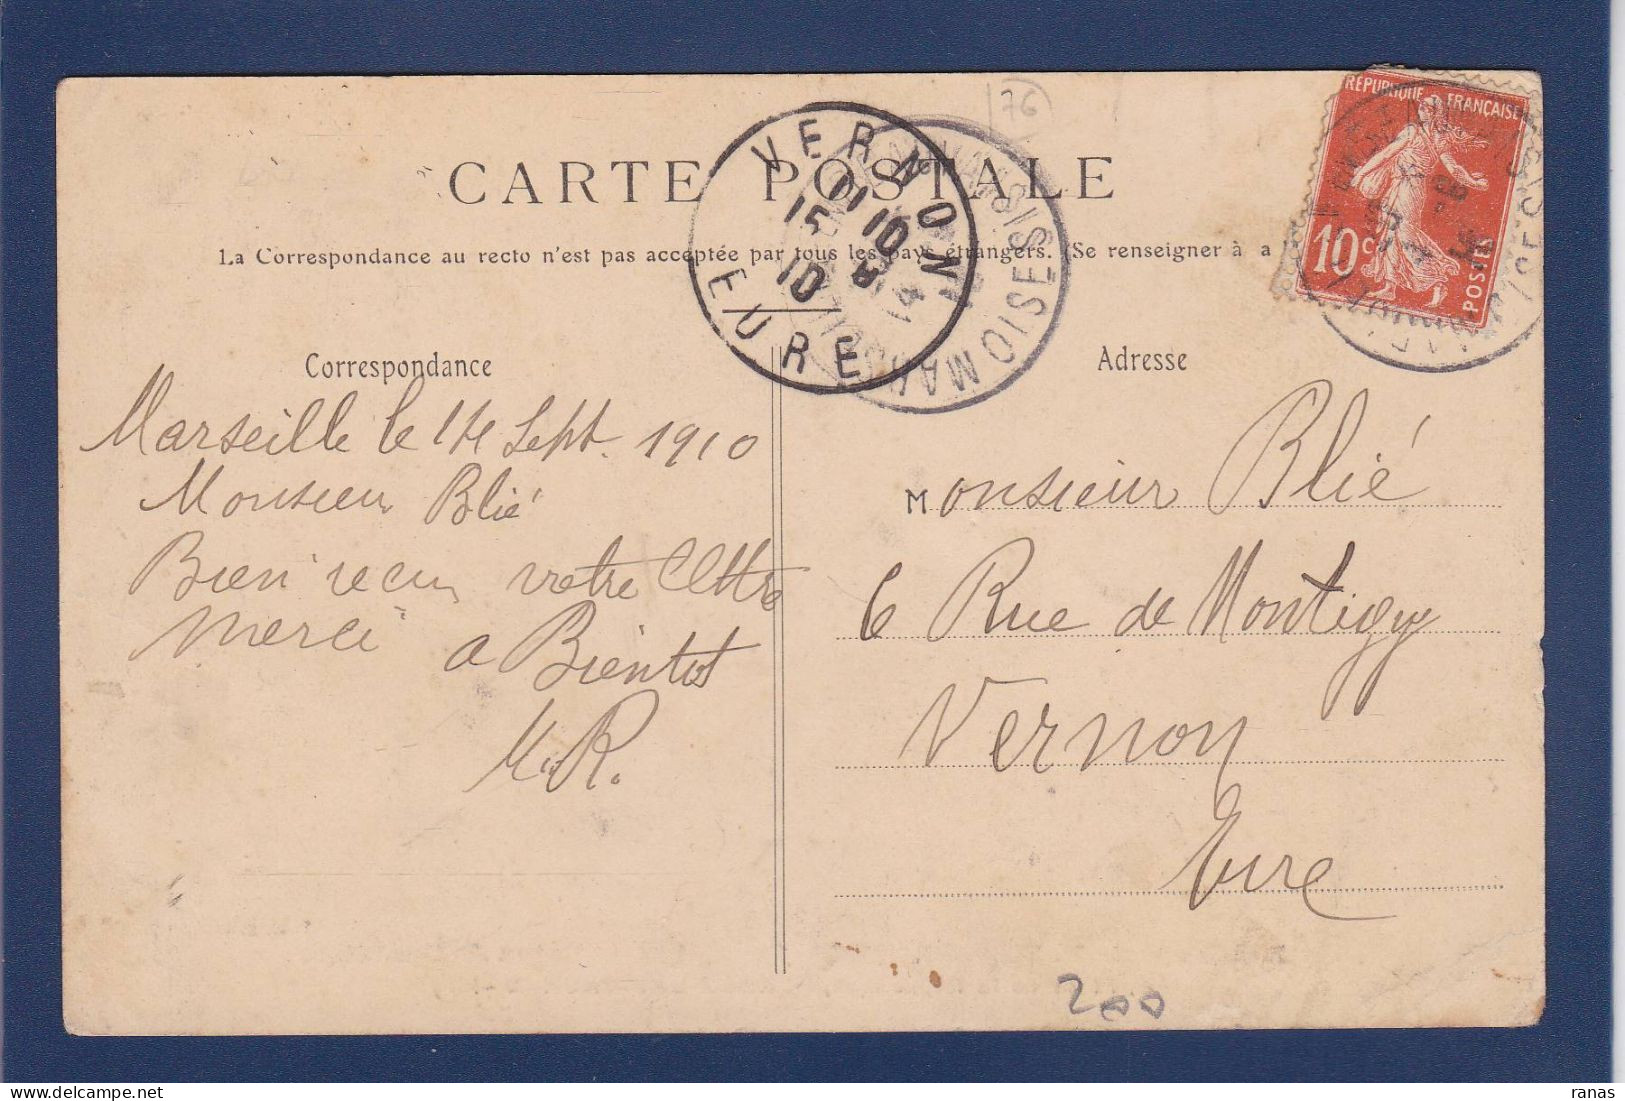 76
CARTE POSTALE
La Correspondance au recto n'est pas acceptée par tous les pays étrangers. (Se renseigner à a
VERNON
11 10
15 5
10
EURE
REPUBLIQUE FRANÇAISE
10c
POSTES
Correspondance
Adresse
Marseille le 14 Sept. 1910
Monsieur Blié
Bien recu votre lettre
Merci a Bientot
M.R.
Monsieur Blié
6 Rue de Montigny
Vernon
Eure
200
ranas